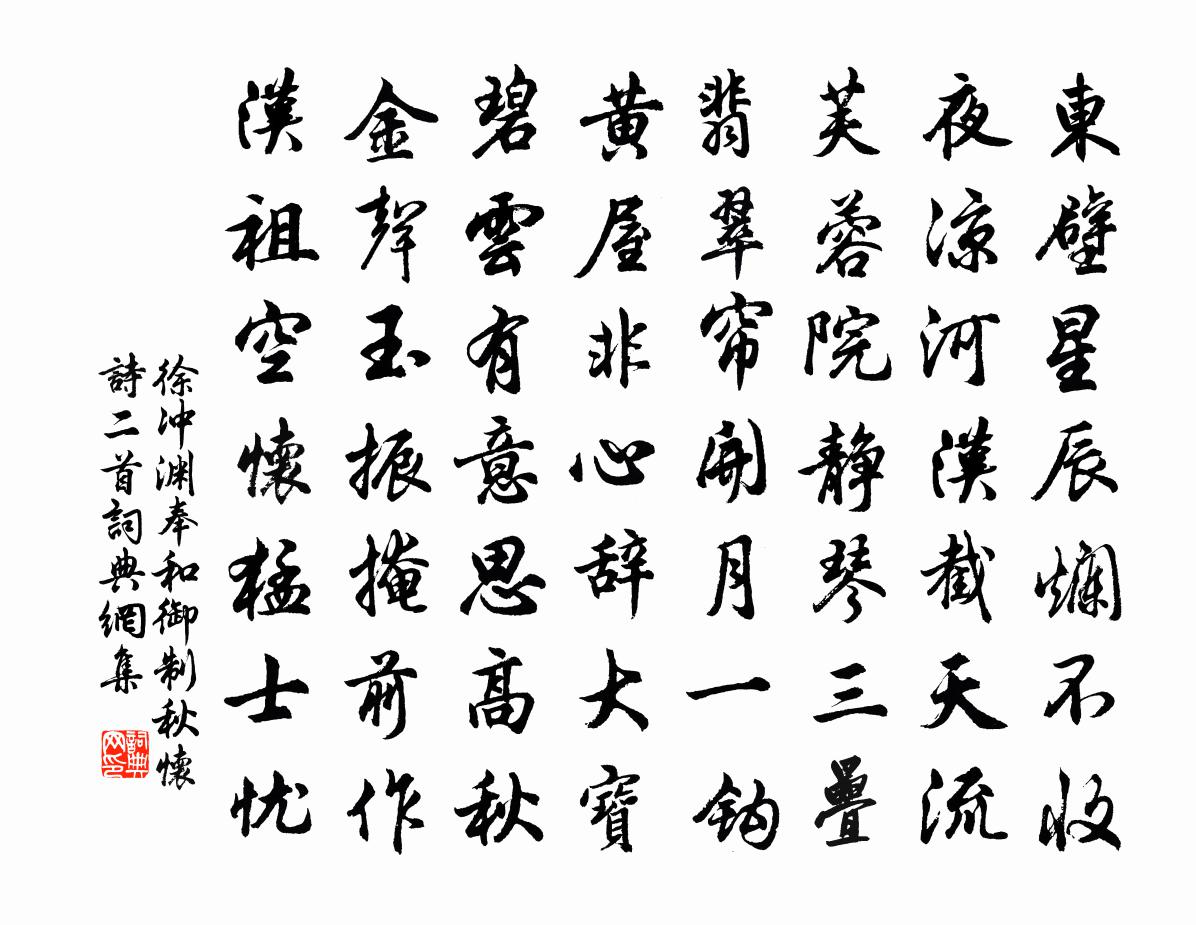 東壁星辰爛不收
夜涼河漢截天流
芙蓉院静琴三疊
翡翠帘開月一鈎
黄屋非心辞大寶
碧雲有意思高秋
金聲玉振掩前作
漢祖空懷猛士忧
徐沖渊奉和御制秋懷
詩二首詞典網集
詞典网印